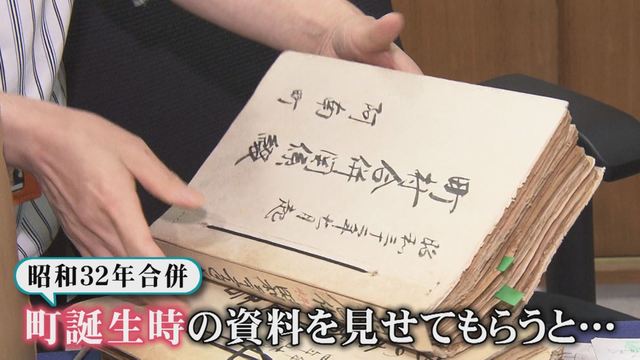 昭和三十二年七月起
町村合併関係綴
阿南町
昭和32年合併
町誕生時の資料を見せてもらうと…